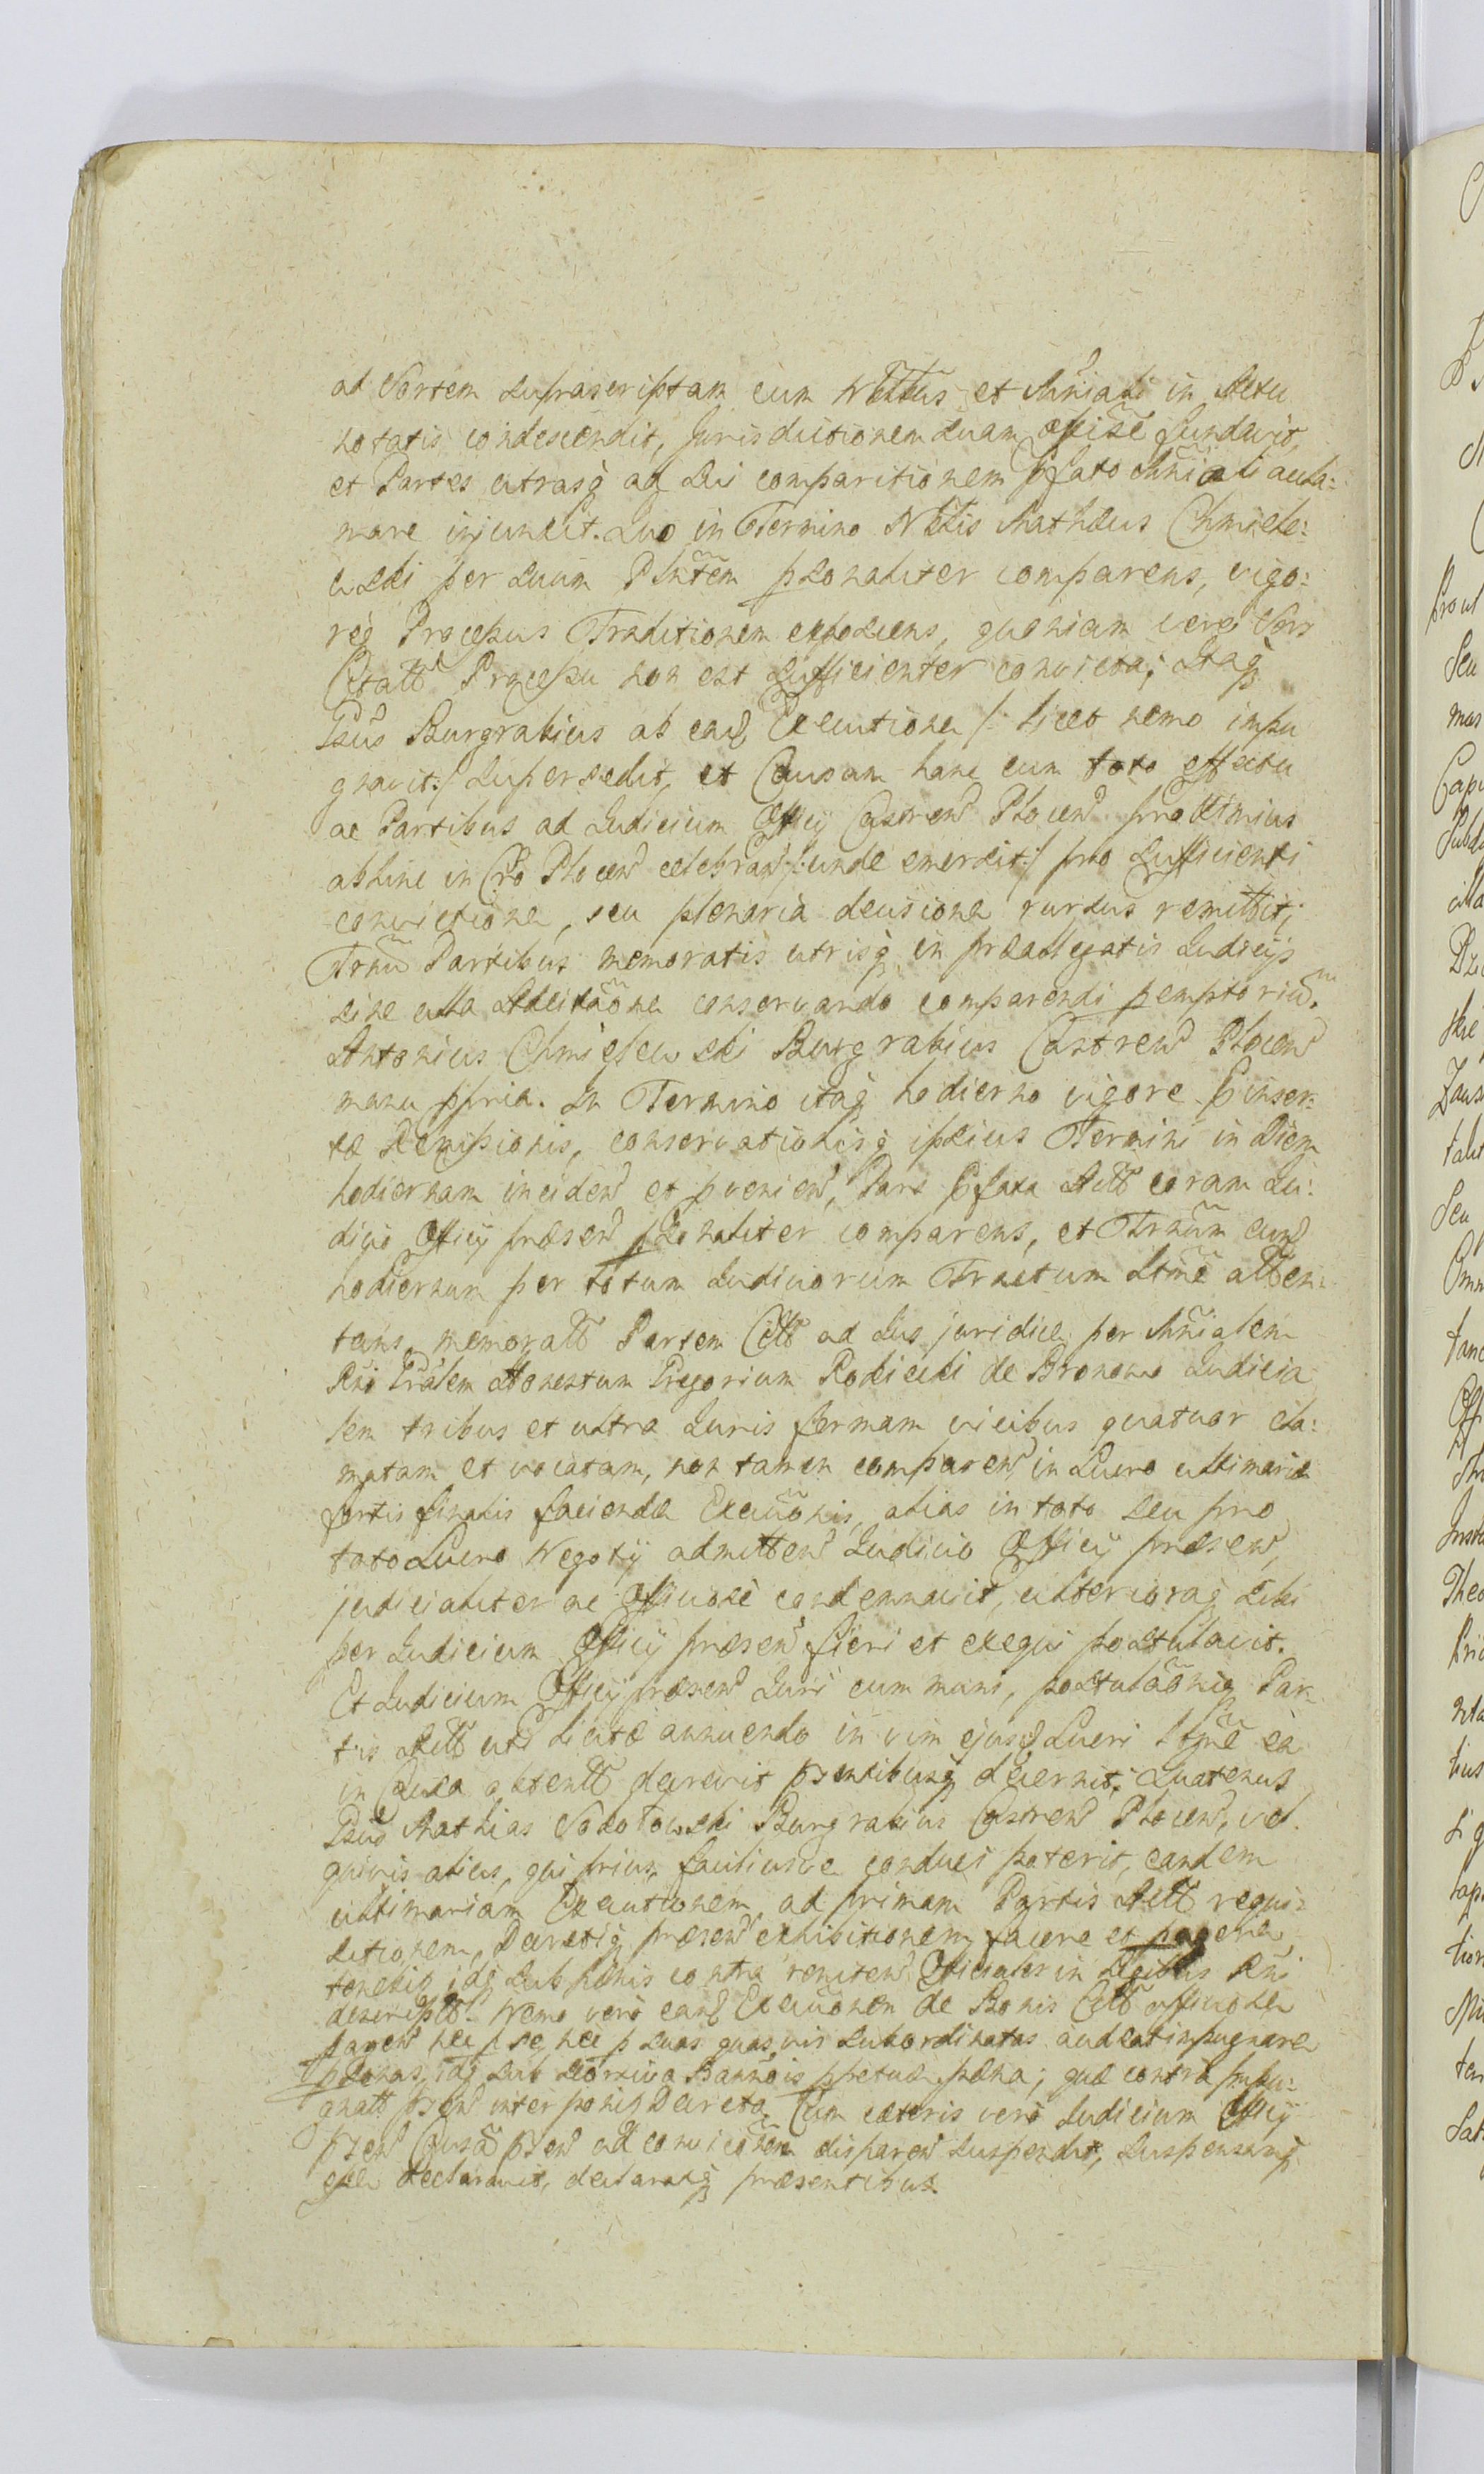 ad Sortem supra scriptam cum Nobilibus et Mñiali in Actu
notatis condescendit, Jurisdictionem suam offise fundavit,
et Partes utrasq̃ ad sui comparitionem p̃fato Mñiali acla:
mare injunxit. Quo in Termino Nblis Mathæus Chmiele:
wski per suum Plntem psonaliter comparens, vigo:
req̃ Processus Traditionem exposcens, quoniam vero Pars
Citatt Processu non est sufficienter convicta; Itaq̃
Gsus Burgrabius ab ead Executione /: licet nemo impu
gnavit :/ supersedit, et Causam hanc cum toto effectu
ac Partibus ad Judicium Officij Castren Plocen proximius
abhinc in Cro Plocen celebran /: unde emersit :/ pro sufficienti
convictione, seu plenaria decisione rursus remittit;
Trñũ Partibus memoratis utrisq̃ in præallegatis Judicijs
sine ulla Adcitãone conservando comparendi pemptorium.
Antonius Chmielewski Burgrabius Castren Plocen
manu ppria. In Termino itaq̃ hodierno vigore p̃inser:
tæ Remissionis, conservationisq̃ ipsius Termini in Diem
hodiernam inciden et pvenien, Pars p̃fata Actt coram Ju:
dicio Officij præsen psonaliter comparens, et Trñum eund
hodiernum per totum Judiciorum Tractum Ltme atten:
tans memoratt Partem Citt ad Jus juridice per Mñialem
Rñi Gralem Honestum Gregorium Rodicki de Bronowo Judicia
lem tribus et ultra Juris formam vicibus quatuor cla:
matam et vocatam, non tamen comparen, in Lucro ultimariæ
fortis finalis faciendæ Execuõnis, alias in toto seu pro
toto Lucro Negotij admitten Judicio Officij præsen,
judicialiter ac Officiose condemnavit, ulterioraq̃ sibi
per Judicium Officij præsen fieri et exequi postulavit.
Et Judicium Officij præsen Juri cum muni, postulãoniq̃ Par
tis Actt uti licitæ annuendo in vim ejusd Lucri Ltme ea
in Causa obtentt decrevit psentibusq̃ decernit; Quatenus
Gsus Mathias Sokołowski Burgrabius Castren Plocen, vel
quivis alius, qui prius, faciliusve conduci poterit, eandem
ultimariam Executionem, ad primam Partis Actt requi:
sitionem, Decretiq̃ præsen exhibitionem facere et
idq̃ sub pænis contra reniten Officiales in Legibus Rñi
descriptt. Nemo vero eand Execuõnem de Bonis Citt officiose
nec p se nec p suas quasvis subordinatas audeat impugnare
psonas, idq̃ sub Banñois ppetuæ pæna; quæ contra impu:
gnatt psen interponit Decreta. Cum cæteris vero Judicium Officij
psen Causã psen ad convicõnem disparen suspendit, suspensamq̃
esse declaravit, declaratq̃ præsentibus.